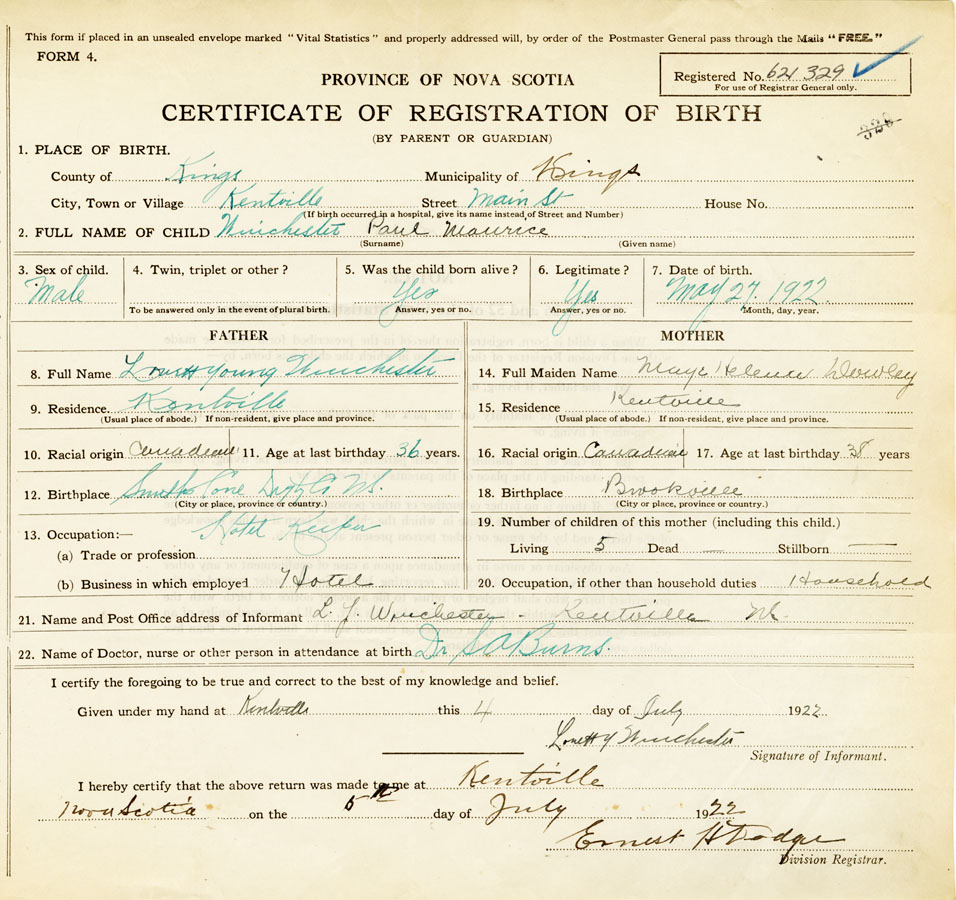 This form if placed in an unsealed envelope marked "Vital Statistics" and properly addressed will, by order of the Postmaster General pass through the Mails "FREE."
FORM 4.
Registered No. 621 329
For use of Registrar General only.
PROVINCE OF NOVA SCOTIA
CERTIFICATE OF REGISTRATION OF BIRTH
(BY PARENT OR GUARDIAN)
329
1. PLACE OF BIRTH.
County of Kings Municipality of Kings
City, Town or Village Kentville Street Main St House No.
(If birth occurred in a hospital, give its name instead of Street and Number)
2. FULL NAME OF CHILD Winchester Paul Maurice
(Surname) (Given name)
3. Sex of child. 4. Twin, triplet or other? 5. Was the child born alive? 6. Legitimate? 7. Date of birth.
Male Yes Yes May 27. 1922.
To be answered only in the event of plural birth. Answer, yes or no. Answer, yes or no. Month, day, year.
FATHER MOTHER
8. Full Name Lovett Young Winchester 14. Full Maiden Name Helena Dowley
9. Residence. Kentville 15. Residence Kentville
(Usual place of abode.) If non-resident, give place and province. (Usual place of abode.) If non-resident, give place and province.
10. Racial origin Canadian 11. Age at last birthday 36 years. 16. Racial origin Canadian 17. Age at last birthday 38 years
12. Birthplace Smiths Cove Digby Co NS. 18. Birthplace Brookville
(City or place, province or country.) (City or place, province or country.)
13. Occupation:— Hotel Keeper 19. Number of children of this mother (including this child.)
(a) Trade or profession Living 5 Dead — Stillborn —
(b) Business in which employed Hotel 20. Occupation, if other than household duties Household
21. Name and Post Office address of Informant L. Y. Winchester - Kentville NS.
22. Name of Doctor, nurse or other person in attendance at birth Dr S A Burns.
I certify the foregoing to be true and correct to the best of my knowledge and belief.
Given under my hand at Kentville this 4 day of July 1922
Lovett Y Winchester
Signature of Informant.
I hereby certify that the above return was made to me at Kentville
Nova Scotia on the 5th day of July 1922
Ernest H Dodge
Division Registrar.